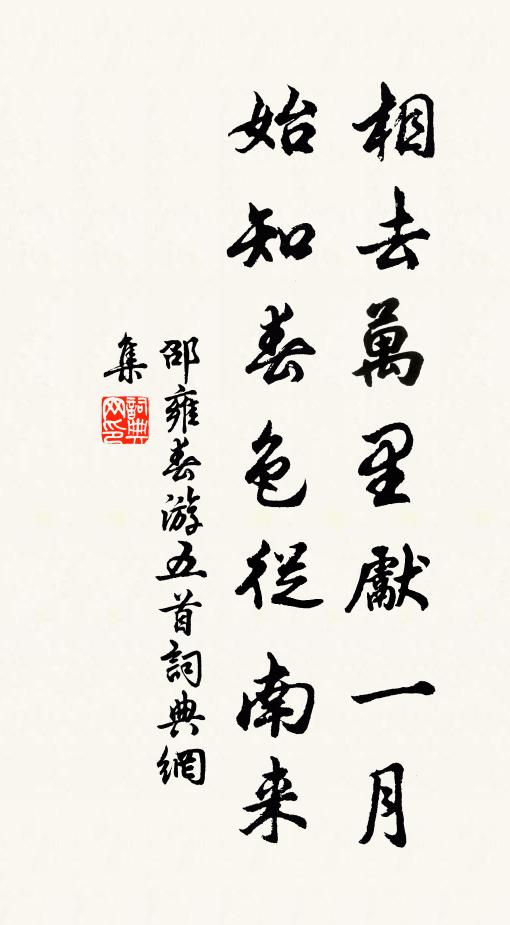 相去萬里獻一月
始知春色從南来
邵雍春游五首詞典網
集
詞典网印